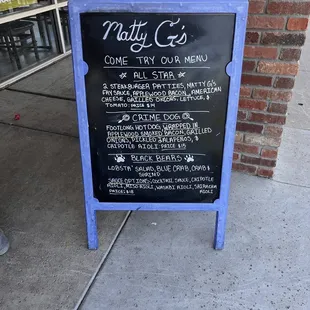 Matty G's
COME TRY OUR MENU
ALL STAR
2 STEAKBURGER PATTIES, MATTY G'S
FRY SAUCE, APPLEWOOD BACON, AMERICAN
CHEESE, GRILLED ONIONS, LETTUCE, &
TOMATO PRICE $14
CRIME DOG
FOOTLONG HOTDOG WRAPPED IN
APPLEWOOD SMOKED BACON, GRILLED
ONIONS, PICKLED JALAPENOS, &
CHIPOTLE AIOLI PRICE $15
BLACK BEARS
LOBSTA' SALAD, BLUE CRAB, CRAB
& SHRIMP
SAUCE OPTIONS: COCKTAIL SAUCE, CHIPOTLE
AIOLI, MISO AIOLI, WASABI AIOLI, SRIRACHA
AIOLI